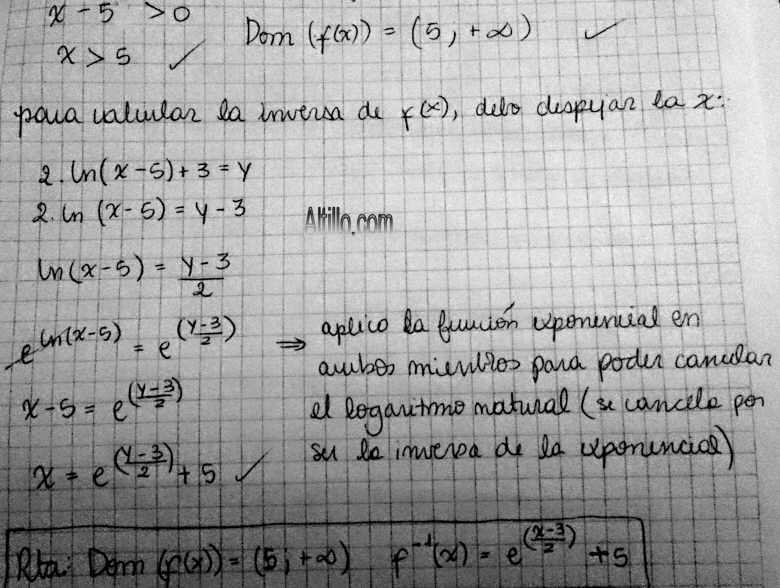 x - 5 > 0
Dom (f(x)) = (5 ; +∞) ✓
x > 5 ✓
para calcular la inversa de f(x), debo despejar la x:
2. ln(x-5) + 3 = y
2. ln (x-5) = y - 3
Altillo.com
ln(x-5) = \frac{y-3}{2}
e^{ln(x-5)} = e^{(\frac{y-3}{2})} ⇒ aplico la función exponencial en
ambos miembros para poder cancelar
x-5 = e^{(\frac{y-3}{2})} el logaritmo natural (se cancela por
ser la inversa de la exponencial)
x = e^{(\frac{y-3}{2})} + 5 ✓
Rta: Dom (f(x)) = (5 ; +∞) f^{-1}(x) = e^{(\frac{x-3}{2})} + 5